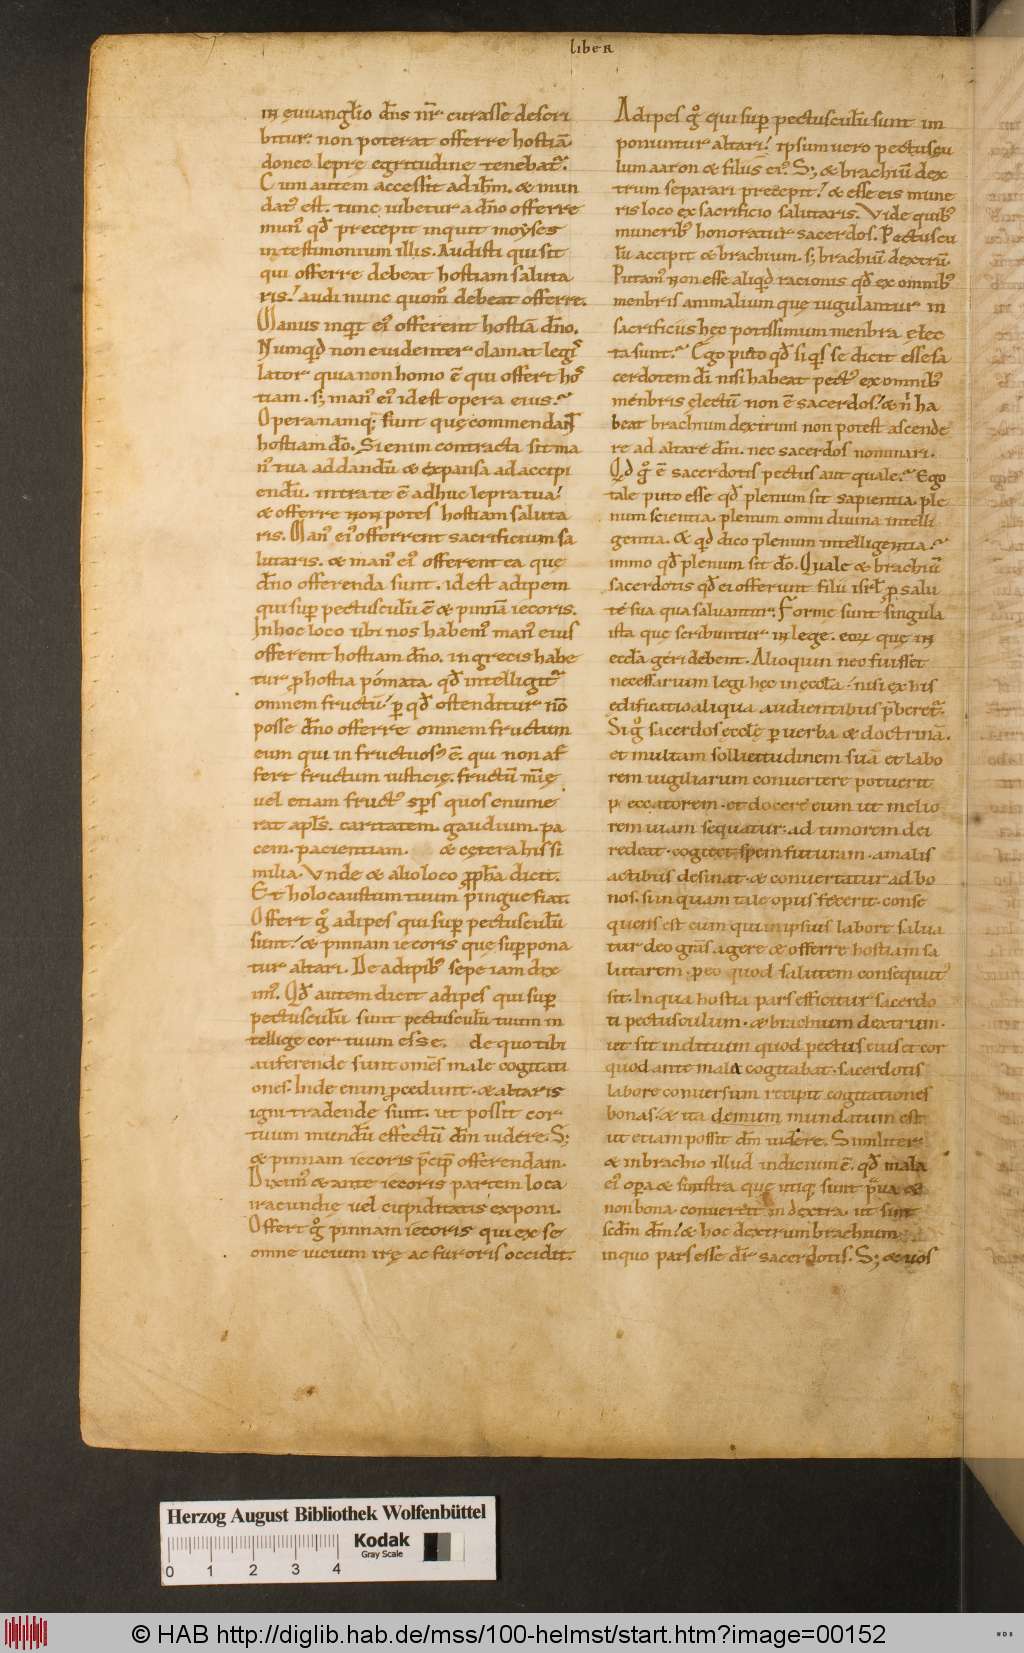 liber
in euuangłio dn̄s nr̄ curasse descri
bitur. non poterat offerre hostiā
donec lepre egritudine tenebatᷣ.
Cum autem accessit ad ihm̄. & mun
datꝰ est. tunc iubetur a dn̄o offerre
munꝰ qd̄ precepit inquit moyses
in testimonium illis. Audisti qui sit
qui offerre debeat hostiam saluta
ris. audi nunc quom̊ debeat offerre.
Manus inquit eiꝰ offerent hostiā dn̄o.
Numqd̄ non euidenter clamat legis
lator quia non homo ē qui offert hos
tiam. sꝫ manꝰ eiꝰ idest opera eius.
Opera namqꝫ sunt que commendant
hostiam dō. Si enim contracta sit ma
nꝰ tua ad dandū & expansa ad accipi
endū. intra te ē adhuc lepra tua.
& offerre non potes hostiam saluta
ris. Manꝰ eiꝰ offerrent sacrificium sa
lutaris. & manꝰ eiꝰ offerent ea que
dn̄o offerenda sunt. idest adipem
qui suꝑ pectusculū ē & pinnā iecoris.
In hoc loco ubi nos habemꝰ manꝰ eius
offerent hostiam dn̄o. in grecis habe
tur ꝓ hostia pomata qd̄ intelligitᷣ
omnem fructū. ꝑ qd̄ ostenditur nō
posse dn̄o offerre omnem fructum
eum qui infructuosꝰ ē. qui non af
fert fructum iusticię. fructū mīę
uel etiam fructꝰ sp̄s quos enume
rat apl̄s. caritatem. gaudium. pa
cem. pacientiam. & cetera his si
milia. Vnde & alio loco ꝓph̄a dicit.
Et holocaustum tuum pingue fiat.
Offert g̊ adipes qui suꝑ pectusculū
sunt. & pinnam iecoris que suꝑpona
tur altari. De adipibꝰ sepe iam dix
imꝰ. Qd̄ autem dicit adipes qui suꝑ
pectusculū sunt pectusculū tuum in
tellige cor tuum esse. de quo tibi
auferende sunt om̄es male cogitati
ones. Inde enim ꝓcedunt. & altaris
igni tradende sunt. ut possit cor
tuum mundū effectū dm̄ uidere. Sꝫ
& pinnam iecoris p̄cip̄ offerendam.
Diximꝰ & ante iecoris partem loca
iracundię uel cupiditatis exponi.
Offert g̊ pinnam iecoris qui ex se
omne uicium irę ac furoris occidit.
Adipes g̊ qui suꝑ pectusculū sunt im
ponuntur altari. ipsum uero pectuscu
lum aaron & filiis eiꝰ. Sꝫ & brachiū dex
trum separari precepit. & esse eis mune
ris loco ex sacrificio salutaris. Vide quibꝰ
muneribꝰ honoratur sacerdos. Pectuscu
lū accipit & brachium. sꝫ brachiū dextrū.
Putamꝰ non esse aliqd̄ racionis qd̄ ex omnibꝰ
menbris animalium que iugulantur in
sacrificiis hęc potissimum menbra ęlec
ta sunt. Ego puto qd̄ si qͥs se dicit esse sa
cerdotem dī nisi habeat pectꝰ ex omnibꝰ
menbris ęlectū non ē sacerdos. & nͥ ha
beat brachium dextrum non potest ascende
re ad altare dm̄. nec sacerdos nominari.
Qd̄ g̊ ē sacerdotis pectus aut quale. Ego
tale puto esse qd̄ plenum sit sapientia. ple
num scientia. plenum omni diuina intelli
gentia. & qd̄ dico plenum intelligentia.
immo qd̄ plenum sit dō. Quale & brachiū
sacerdotis qd̄ ei offerunt filii isrł ꝓ salu
te sua qua saluantur. Forme sunt singula
ista que scribuntur in lege. eoꝝ que in
eccl̄a geri debent. Alioquin nec fuisset
necessarium legi hec in eccl̄a. nisi ex his
edificatio aliqua audientibus p̄beretᷣ.
Si g̊ sacerdos eccl̄ę ꝑ uerba & doctrinā.
et multam sollicitudinem suā et labo
rem uigiliarum conuertere potuerit
peccatorem. et docere eum ut melio
rem uiam sequatur. ad timorem dei
redeat. cogitet spem futuram. a malis
actibus desinat. & conuertatur ad bo
nos. si in quam tale opus fecerit. conse
quens est eum qui in ipsius labori salua
tur deo grās agere & offerre hostiam sa
lutarem. ꝑ eo quod salutem consequutꝰ
sit. In qua hostia pars efficitur sacerdo
ti pectusculum. & brachium dextrum.
ut sit indicium quod pectus eius et cor
quod ante mala cogitabat. sacerdotis
labore conuersum recipit cogitationes
bonas. & ita demum mundatum est
ut etiam possit dm̄ uidere. Similiter
& in brachio illud indicium ē. qd̄ mala
eiꝰ oꝑa & sinistra que utiqꝫ sunt p̄ua &
non bona. conuertit in dextra. ut sint
scdm̄ dm̄. & hoc dextrum brachium
in quo pars esse dr̄ sacerdotis. Sꝫ & uos
Herzog August Bibliothek Wolfenbüttel
Kodak
Gray Scale
0 1 2 3 4
© HAB http://diglib.hab.de/mss/100-helmst/start.htm?image=00152